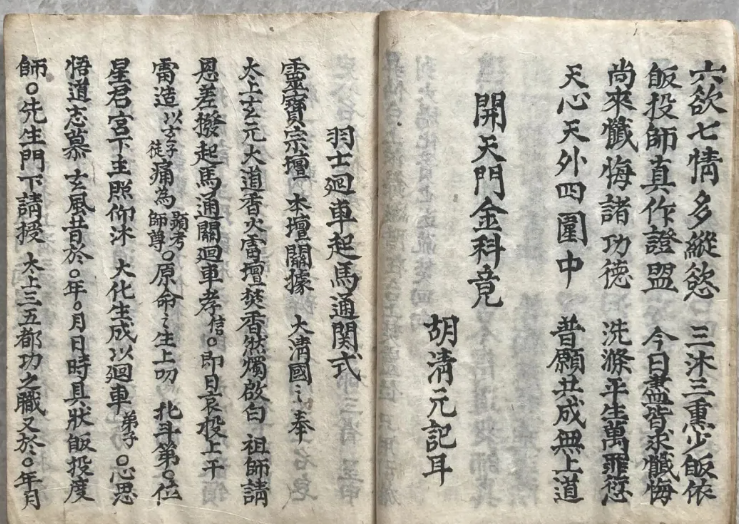 六欲七情多縱慾　三沐三熏少皈依
皈投師真作證盟　今日盡皆求懺悔
尚來懺悔諸功德　洗滌平生萬罪愆
天心天外四圍中　普願共成無上道
開天門金科竟
胡清元記耳
羽士迴車起馬通関式
靈寶宗壇　本壇關據　大清國〻奉
太上玄元大道香火雷壇焚香然燭啟白　祖師請
恩差撥起馬通關迴車孝信○即日哀投上干
雷造以玄子徒痛為顯考師尊○原命〻生上叨　北斗第○位
星君宮下主照仰沐　大化生成以迴車弟子○心思
悟道志慕　玄風昔於○年○月日時具狀皈投度
師○先生門下請授　太上三五都功之職又於○年月